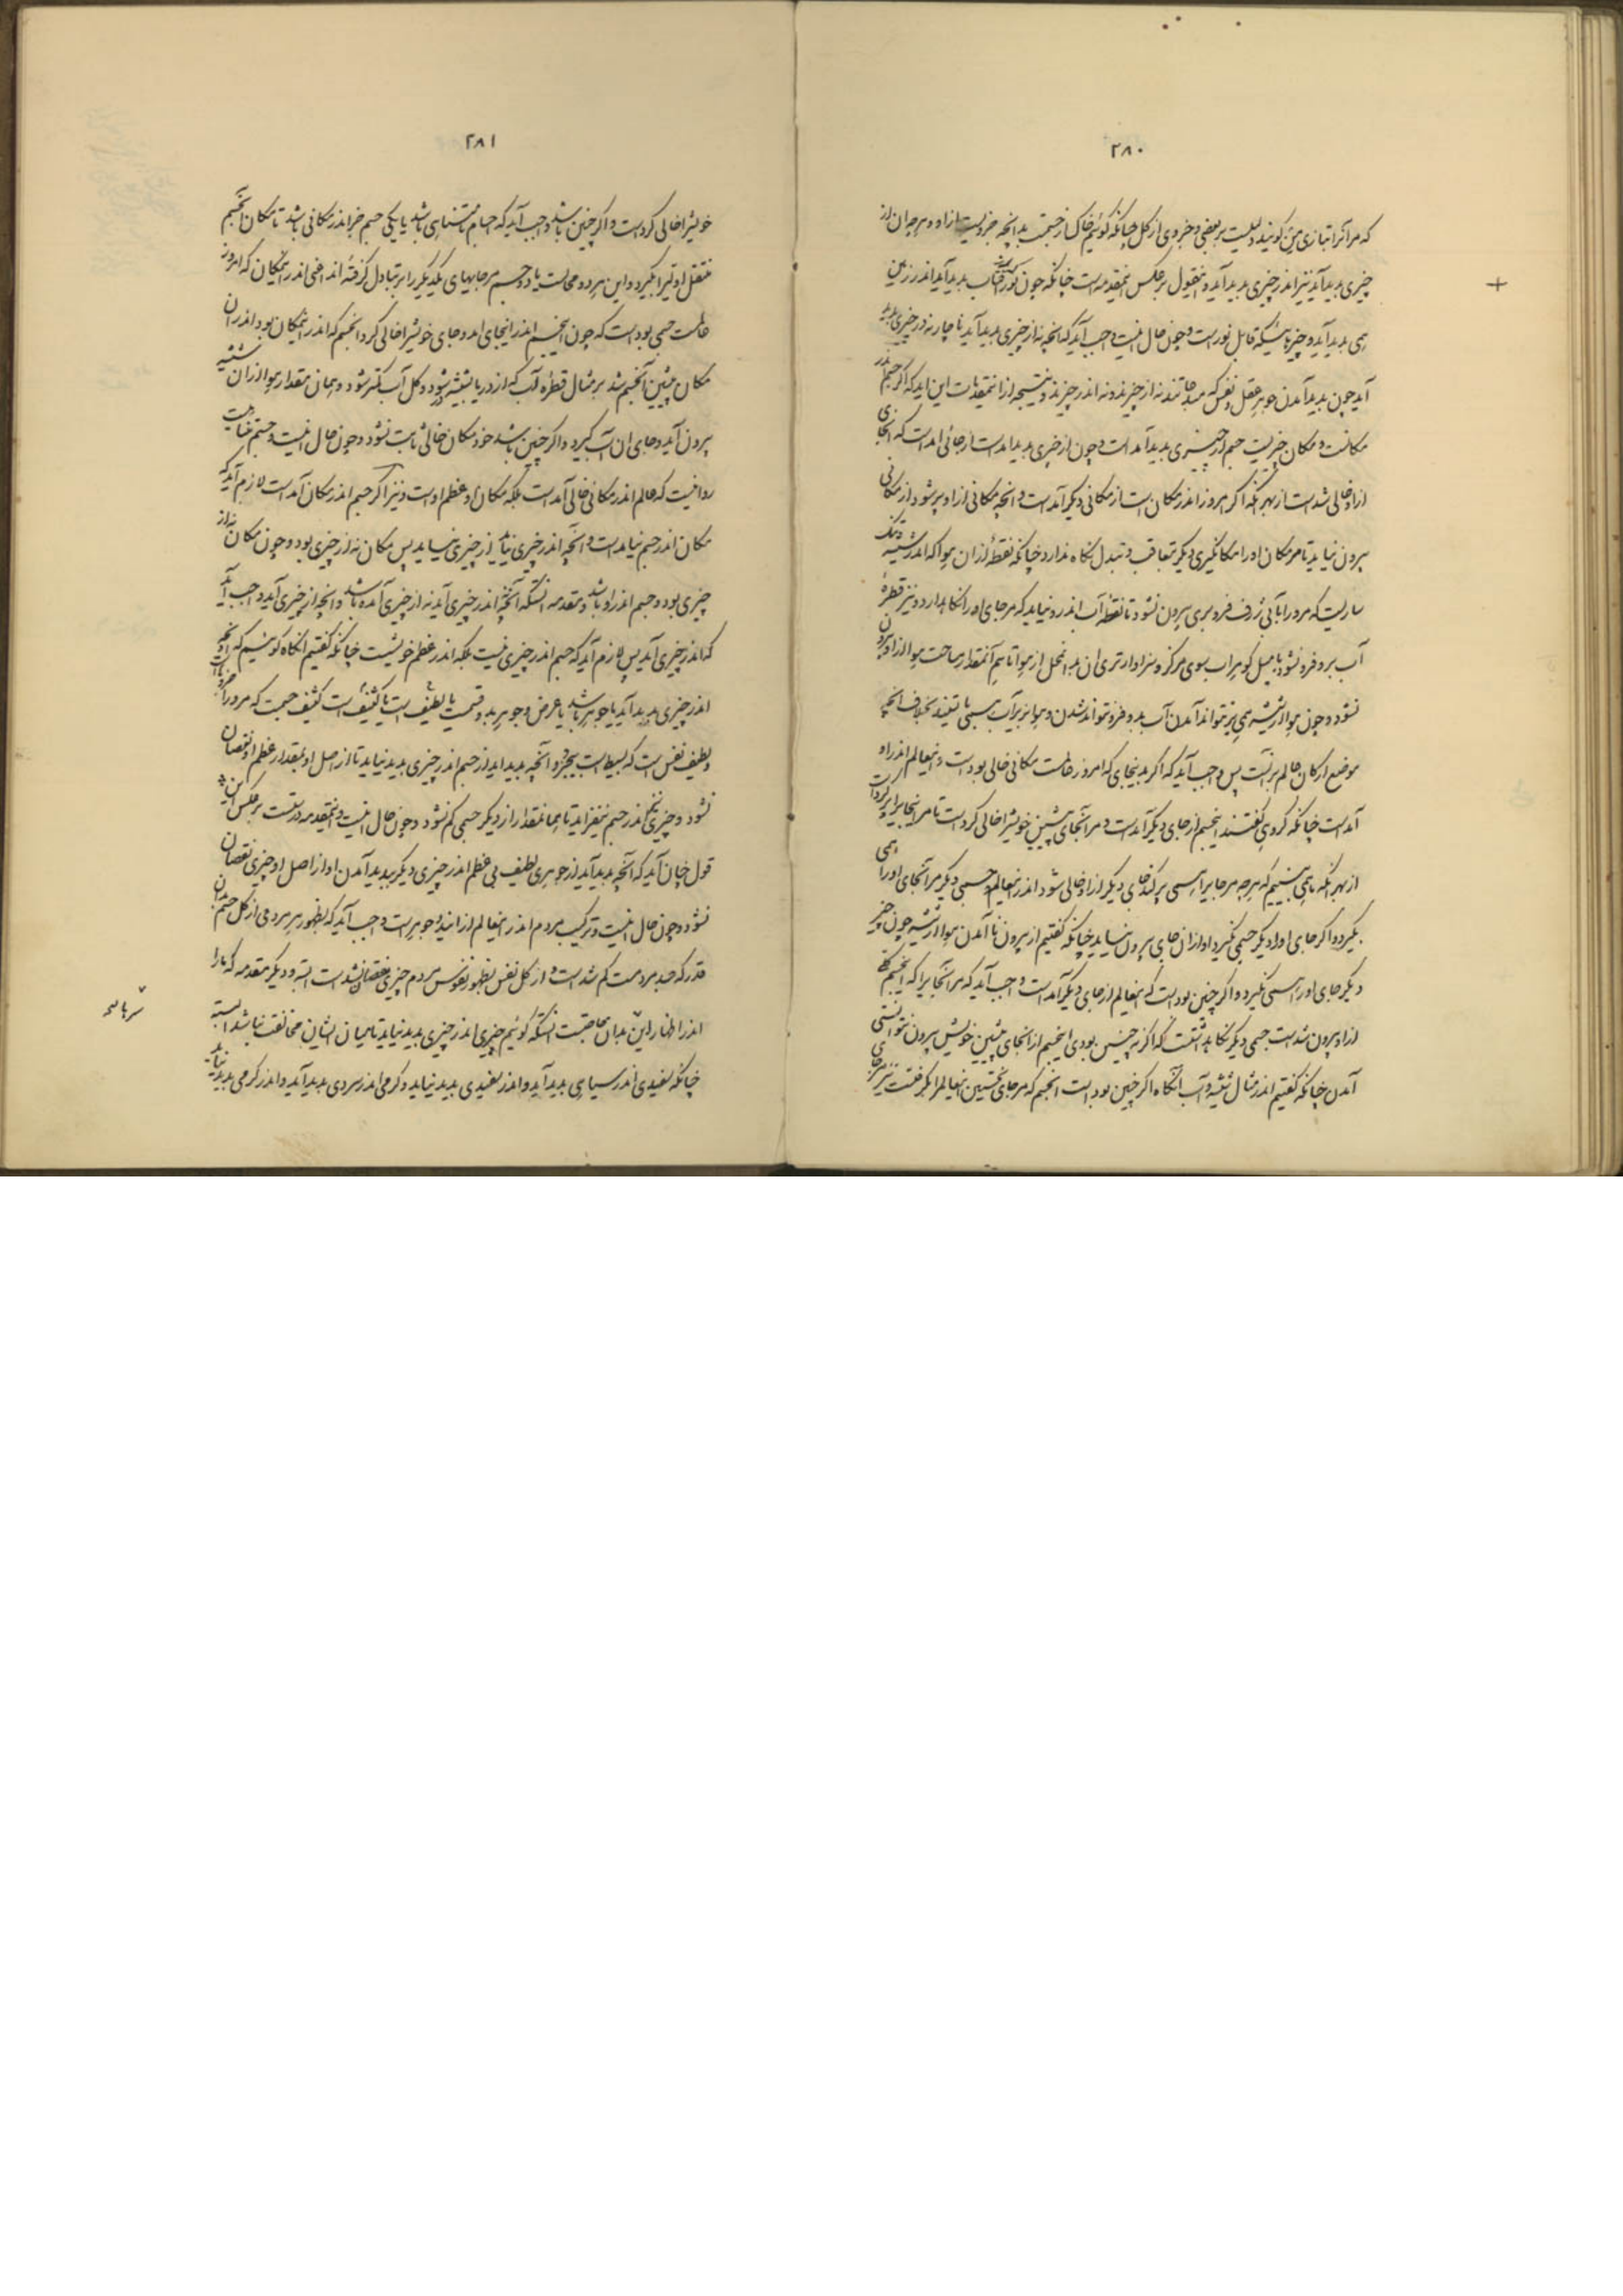 ۲۸۰
که مر آنرا بتازی من گویند دلیلست بر بعضی و جزوی از کل چنانکه گوئیم خاک از جسمست بدانچه جزویست ازاو و هرچه ان از
چیزی پدید آید نیز اندر چیزی پدید آید و اینقول بر عکس اینمقدمه است چنانکه چون نور از آفتاب پدید آید اندر زمین
همی پدید آید و چیزهائیکه قابل نور است و چون حال اینست واجب آید که آنچه نه از چیزی پدید آید ناچار نه در چیزی پدید
آید چون پدید آمدن جوهر عقل و نفس که مبدعانند نه از چیزند و نه اندر چیزند و نتیجه از اینمقدمات این اید که اگر جسم اندر
مکانست و مکان چیزیست جسم از چیزی پدید آمد است و چون از چیزی پدید امد است از جائی امد است که انجای
ازاو خالی شد است از بهر آنکه اگر امروز اندر مکان است از مکانی دیگر آمد است و انچه مکانی ازاو پر شود از مکانی
بیرون نیاید تا مر مکان اورا مکانگیری دیگر بتعاقب و تبدل نگاه ندارد چنانکه نقطهٔ ازان هوا که اندر شیشه تنک
ساریست که مر ورا بآبی ژرف فرو بری بیرون نشود تا نقطهٔ آب اندرو نیاید که مر جای اورا نگاهدارد و نیز قطرهٔ
آب برو فرو نشود با میل گوهر اب سوی مرکز و سزاوارتری ان بدانمحل از هوا تا هم آنمقدار مساحت هوا ازاو بیرون
نشود و چون هوا از شیشه همی برنتواند آمدن آب بدو فرو نتواند شدن و هوا بزیر آب همی بایستد بخلاف انچه
موضع ارکان عالم بر آنست پس واجب آید که اگر بدینجای که امروز عالمست مکانی خالی بود است و اینعالم اندراو
آمد است چنانکه گروهی گفتند اینجسم از جای دیگر آمد است و مر آنجای پیشین خویشرا خالی کرد است تا مر اینجایرا پر کرد است
از بهر آنکه ما همی بینیم که هرچه مر جایرا همی پر کند جای دیگر ازاو خالی شود اندر اینعالم و جسمی دیگر مر آنجای اورا همی
بگیرد و اگر جای اورا دیگر جسمی نگیرد او ازان جای بیرون نیاید چنانکه گفتیم از بیرون نا آمدن هوا از شیشه چون چیز
دیگر جای اورا همی نگیرد و اگر چنین بود است که اینعالم از جای دیگر آمد است واجب آید که مر آنجایرا که اینجسم کلی
ازاو بیرون شد است جسمی دیگر نگاه داشتست که اگر نه چنین بودی اینجسم از انجای پیشین خویش بیرون نتوانستی
آمدن چنانکه گفتیم اندر مثال شیشه و آب آنگاه اگر چنین بود است انجسم که مر جای نخستین اینعالم را بگرفتست نیز مر جای
۲۸۱
خویشرا خالی کرد است و اگر چنین باشد واجب آید که اجسام نامتناهی باشد یا یکی جسم جز اندر مکانی باشد تا مکان آنجسم
منتقل اولی را بگیرد و این هر دو محالست یا دو جسم مر جایهای یکدیگر را بر تبادل گرفته اند اعنی اندر اینمکان که امروز
عالمست جسمی بود است که چون اینجسم اندر اینجای امد و جای خویشرا خالی کرد انجسم که اندر اینمکان بود اندر ان
مکان پیشین آنجسم شد بر مثال قطره آب که از دریا بشیشه در شود و کل آب کمتر شود و همان مقدار هوا ازان شیشه
بیرون آید و جای ان آب گیرد و اگر چنین باشد خود مکان خالی ثابت نشود و چون حال اینست و جسم متناهیست
روا نیست که عالم اندر مکانی خالی آمد است بلکه مکان او عظم اوست و نیز اگر جسم اندر مکان آمد است لازم آید که
مکان اندر جسم نیامد است و آنچه اندر چیزی نیاید از چیزی نیاید پس مکان نه از چیزی بود و چون مکان نه از
چیزی بود و جسم اندراو باشد و مقدمه انستکه آنچه اندر چیزی آید نه از چیزی آمده باشد و انچه از چیزی آید واجب آید
که اندر چیزی آید پس لازم آید که جسم اندر چیزی نیست بلکه اندر عظم خویشست چنانکه گفتیم آنگاه گوئیم که هر آنچه
اندر چیزی پدید آید یا جوهر باشد یا عرض و جوهر بدو قسمست یا لطیف است یا کثیف است کثیف جسمست که مر ورا اجزا است
و لطیف نفس است که بسیط است بیجزو و آنچه پدید اید از جسم اندر چیزی پدید نیاید تا از اصل او بمقدار عظم او نقصان
نشود و چیزی نیز اندر جسم نیفزاید تا بهمان مقدار از دیگر جسمی کم نشود و چون حال اینست و اینمقدمه درستست بر عکس این
قول چنان آید که آنچه پدید آید از جوهری لطیف بی عظم اندر چیزی دیگر بپدید آمدن او از اصل او چیزی نقصان
نشود و چون حال اینست و ترکیب مردم اندر اینعالم ازاین دو جوهر است واجب آید که بظهور هر مردمی از کل جسم ان
قدر که جسد مردمست کم شد است و از کل نفس بظهور نفوس مردم چیزی نقصان نشد است البته و دیگر مقدمه که مارا
اندر اظهار این بدان حاجتست انستکه گوئیم چیزی اندر چیزی پدید نیاید تا میان ایشان مخالفت نباشد البته
چنانکه سفیدی اندر سیاهی پدید آید و اندر سفیدی پدید نیاید و گرمی اندر سردی پدید آید و اندر گرمی پدید نیاید